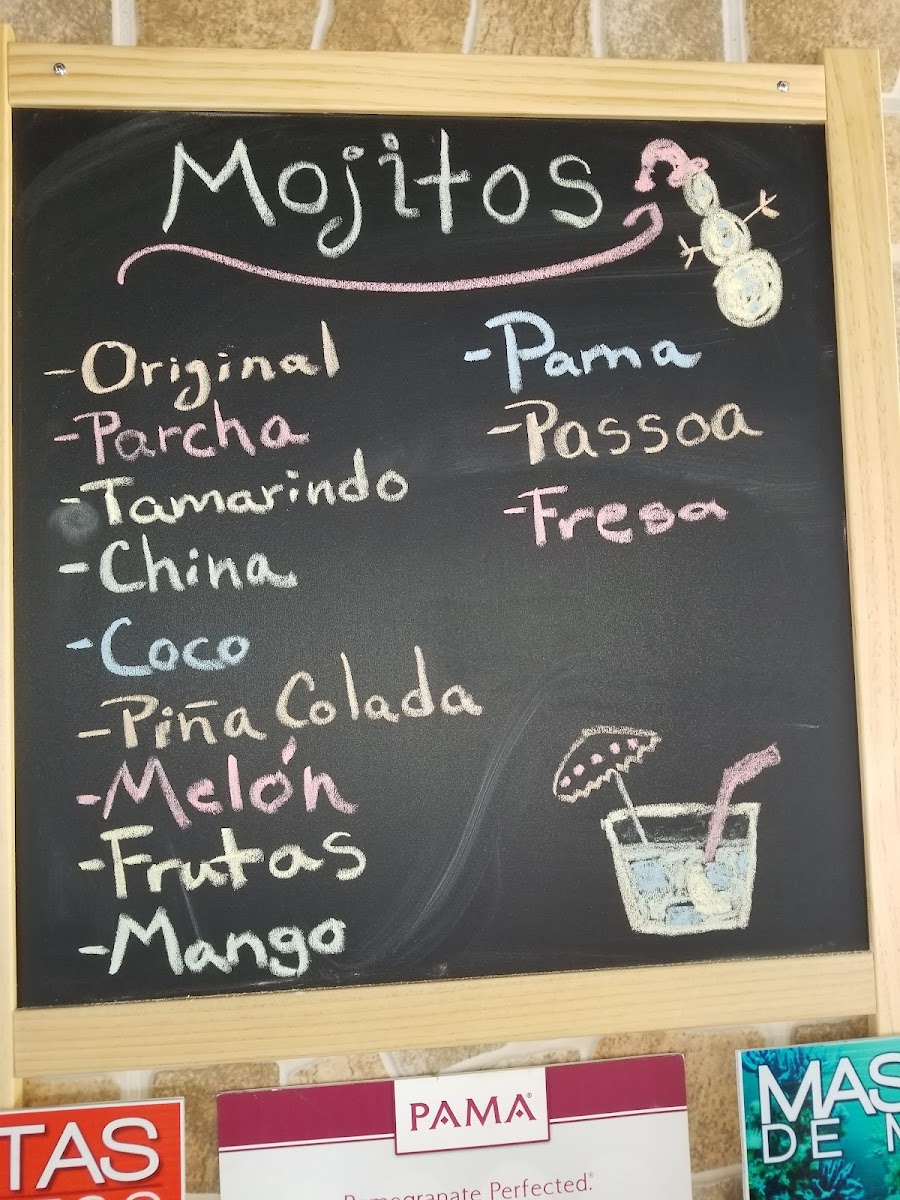 Mojitos
-Original
-Parcha
-Tamarindo
-China
-Coco
-Piña Colada
-Melón
-Frutas
-Mango
-Pama
-Passoa
-Fresa
TAS
PAMA®
Pomegranate Perfected.®
MAS
DE